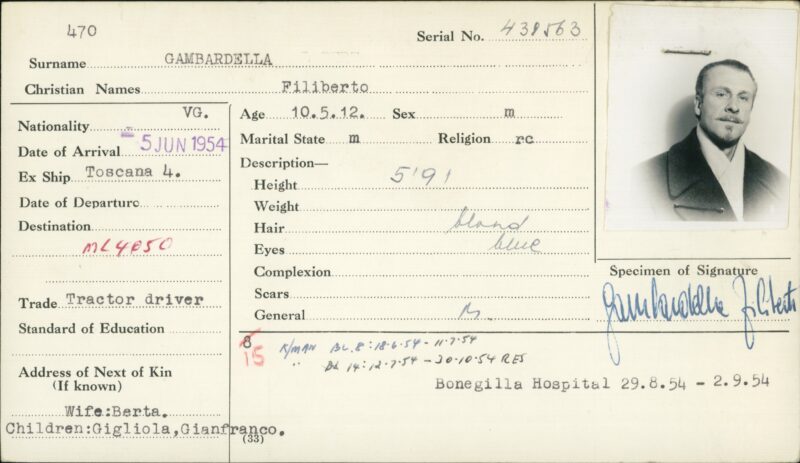 470
Serial No. 438563
Surname GAMBARDELLA
Christian Names Filiberto
Nationality VG.
Date of Arrival - 5 JUN 1954
Ex Ship Toscana 4.
Date of Departure
Destination
ML4650
Trade Tractor driver
Standard of Education
Address of Next of Kin
(If known)
Wife:Berta.
Children:Gigliola,Gianfranco.
Age 10.5.12. Sex m
Marital State m Religion rc
Description—
Height 5'9
Weight
Hair blond
Eyes blue
Complexion
Scars
General M.
Specimen of Signature
Gambardella Filiberto
8
15
R/MAN BL.8:18-6-54-11-7-54
" BL 14:12-7-54-20-10-54 RES
Bonegilla Hospital 29.8.54 - 2.9.54
(33)